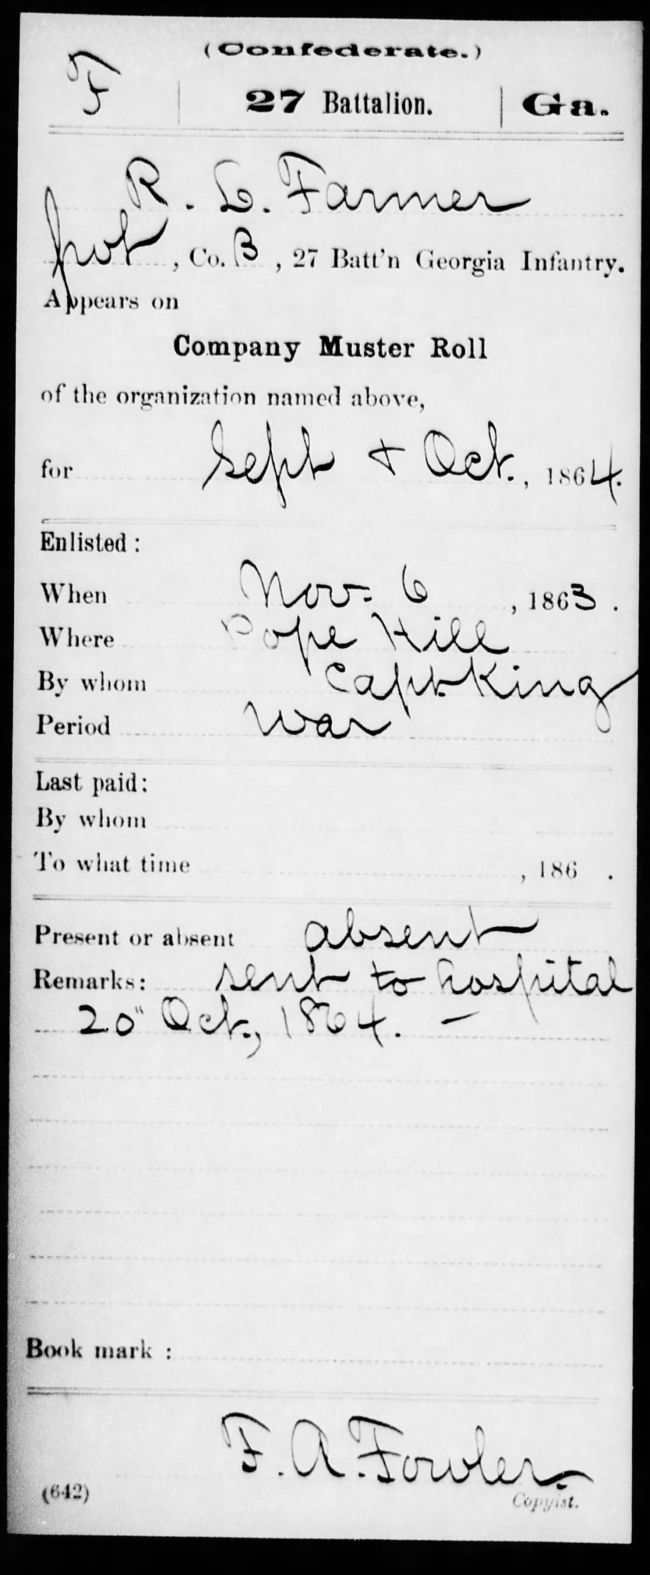 (Confederate.)
F | 27 Battalion. | Ga.
R. L. Farmer
pvt, Co. B, 27 Batt'n Georgia Infantry.
Appears on
Company Muster Roll
of the organization named above,
for Sept & Oct., 1864.
Enlisted:
When Nov. 6, 1863.
Where Pope Hill
By whom Capt. King
Period War
Last paid:
By whom
To what time , 186 .
Present or absent absent
Remarks: sent to hospital
20" Oct., 1864. —
Book mark:
F. A. Fowler
(642) Copyist.